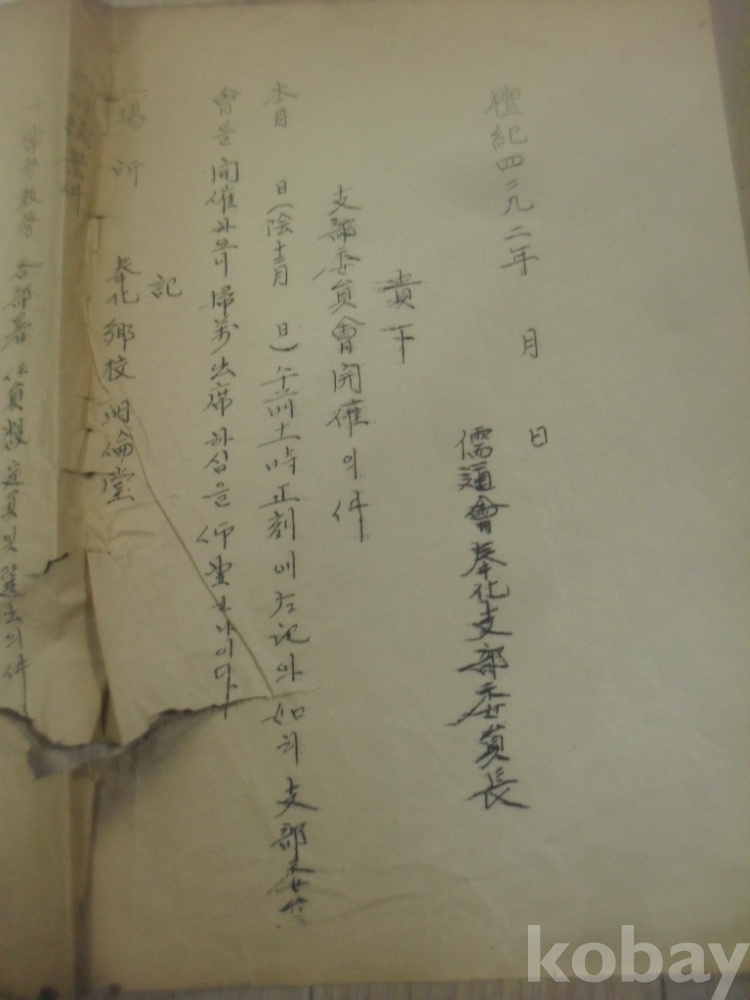 檀紀四二九二年 月 日
儒道會奉化支部委員長
貴下
支部委員會開催의件
本月 日(陰十二月 日) 午前十一時正刻에左記와如히支部委員
會를開催하오니掃萬出席하심을仰望하나이다
記
場所 奉化鄕校明倫堂
各部署任員數定員및選出의件
kobay